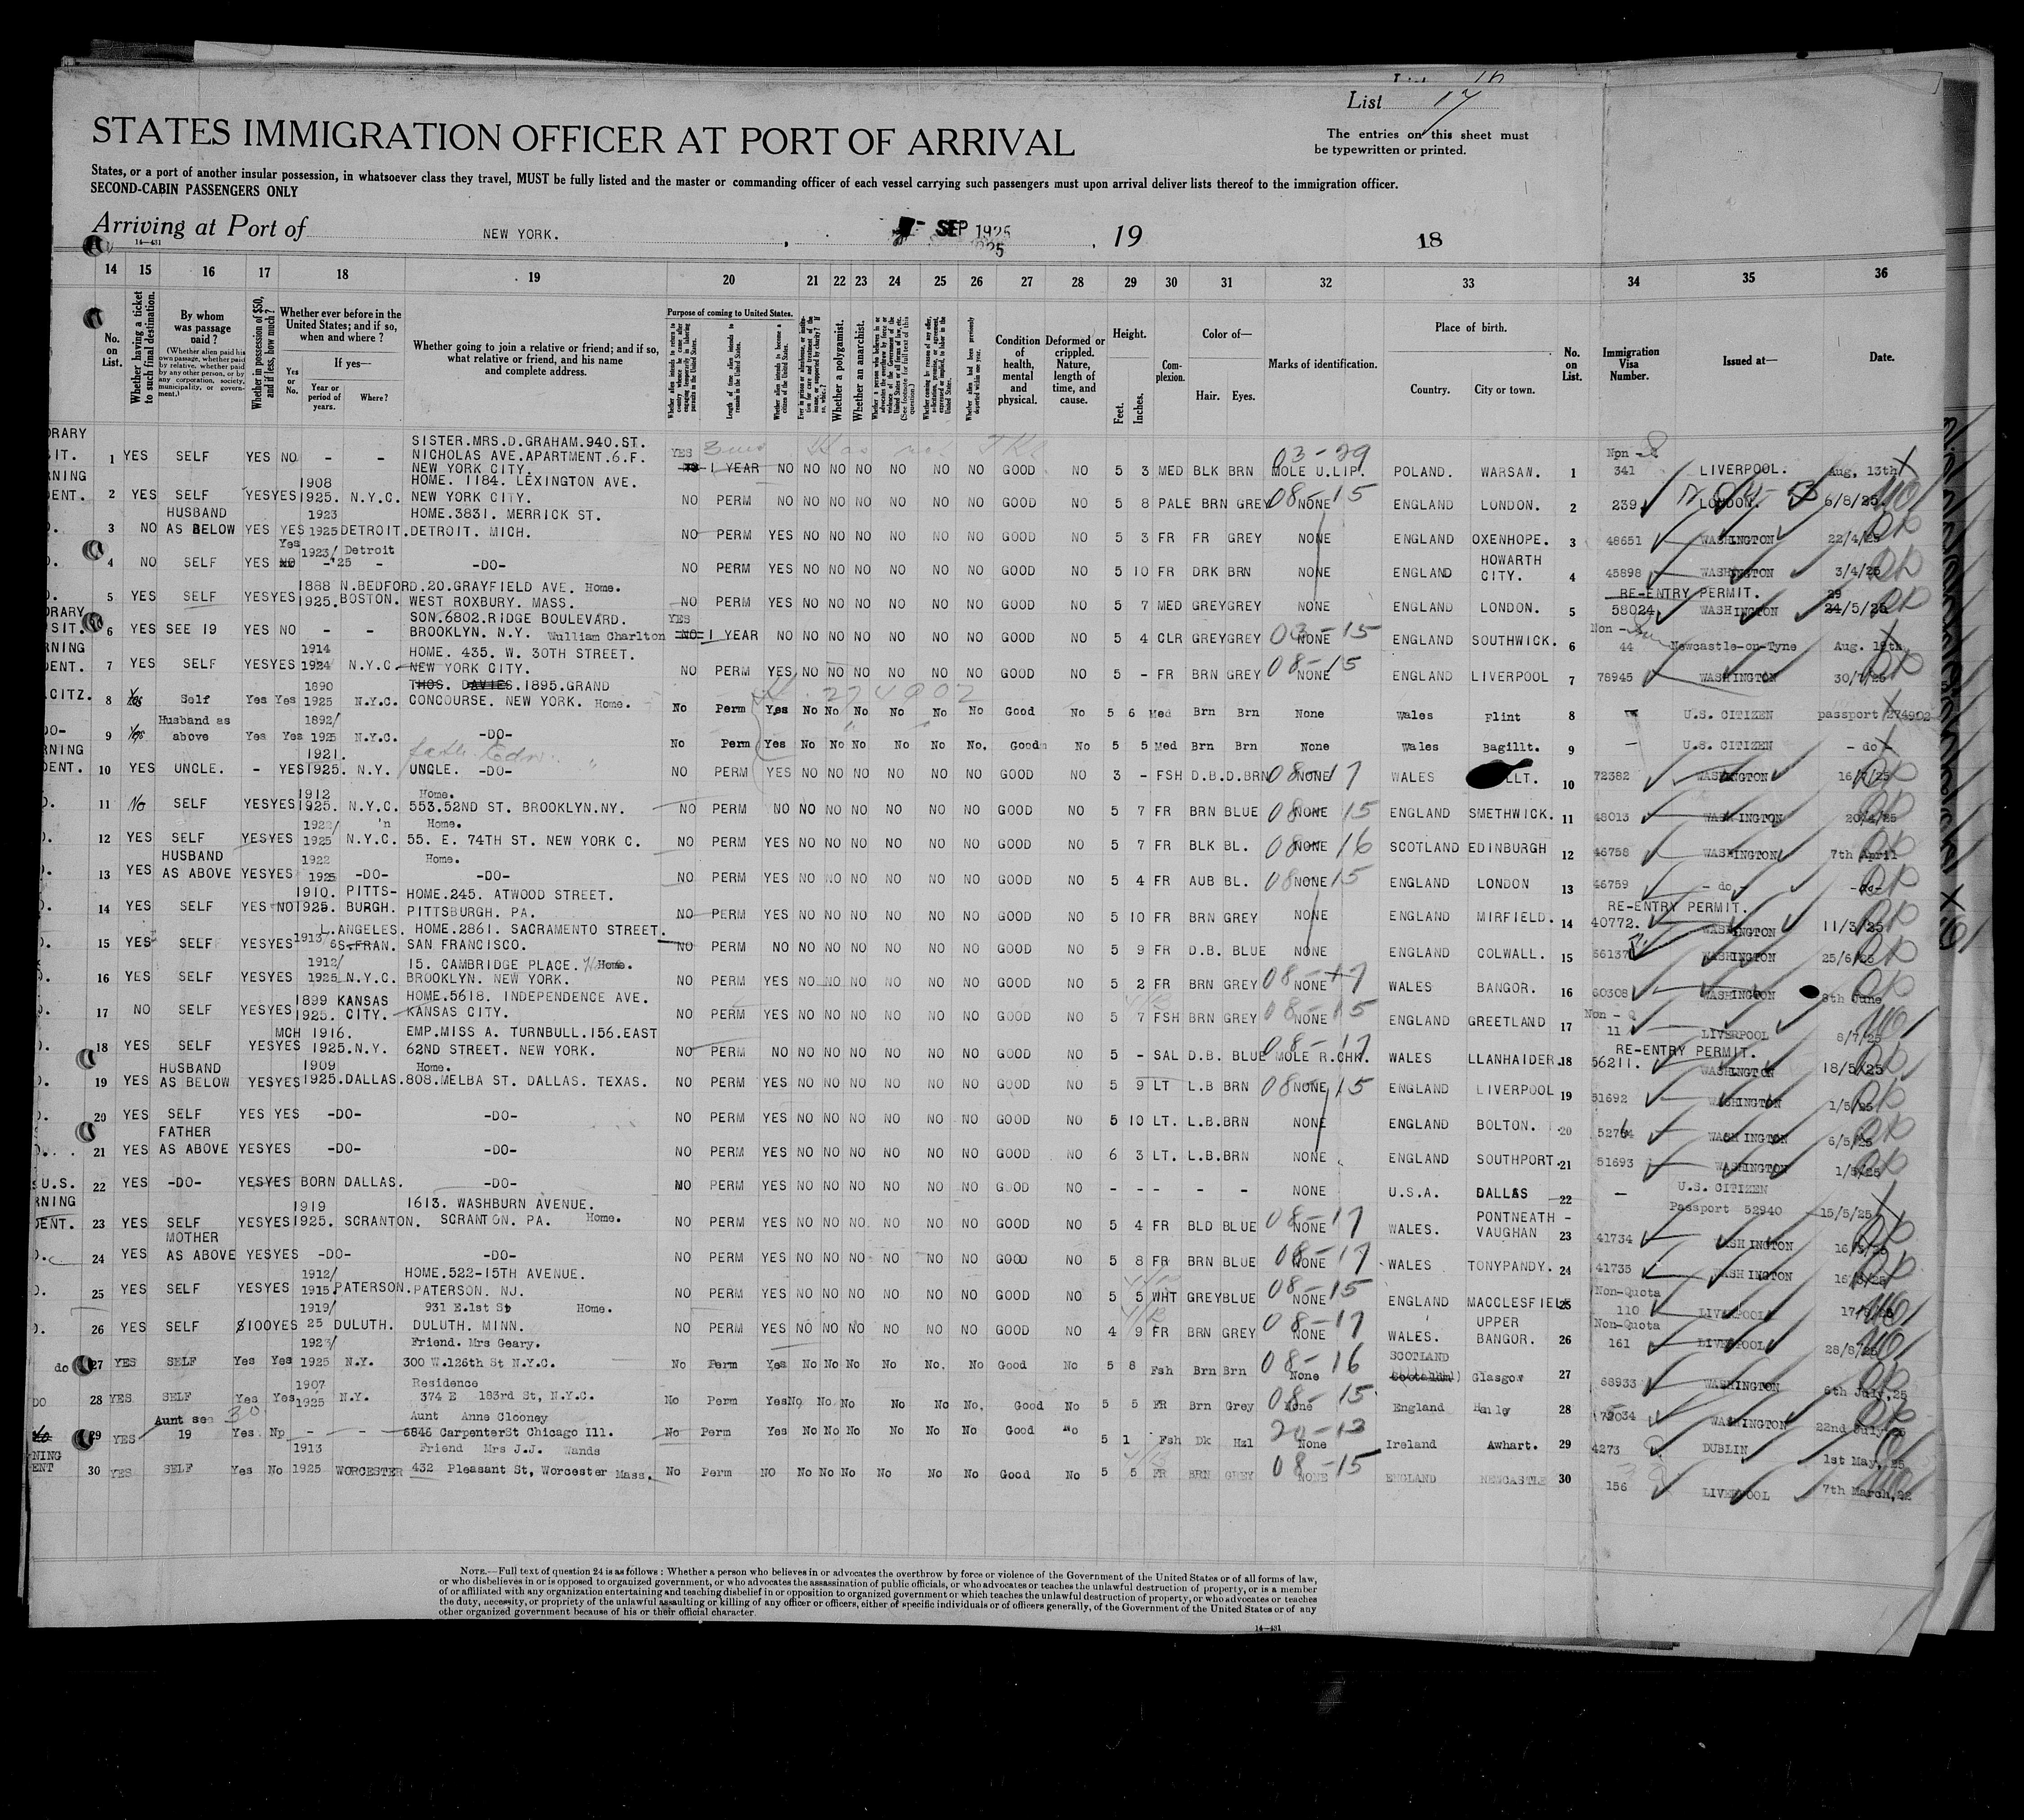 List 17
The entries on this sheet must
be typewritten or printed.
STATES IMMIGRATION OFFICER AT PORT OF ARRIVAL
States, or a port of another insular possession, in whatsoever class they travel, MUST be fully listed and the master or commanding officer of each vessel carrying such passengers must upon arrival deliver lists thereof to the immigration officer.
SECOND-CABIN PASSENGERS ONLY
Arriving at Port of NEW YORK. , SEP 1925 , 19 18
14—431
14 15 16 17 18 19 20 21 22 23 24 25 26 27 28 29 30 31 32 33 34 35 36
No. on List.
Whether having a ticket to such final destination.
By whom was passage paid?
(Whether alien paid his own passage, whether paid by relative, whether paid by any other person, or by any corporation, society, municipality, or government.)
Whether in possession of $50, and if less, how much?
Whether ever before in the United States; and if so, when and where?
Yes or No.
If yes—
Year or period of years.
Where?
Whether going to join a relative or friend; and if so, what relative or friend, and his name and complete address.
Purpose of coming to United States.
Length of time alien intends to remain in the United States.
Whether alien intends to become a citizen of the United States.
Whether a polygamist.
Whether an anarchist.
Condition of health, mental and physical.
Deformed or crippled. Nature, length of time, and cause.
Height.
Feet. Inches.
Complexion.
Color of—
Hair. Eyes.
Marks of identification.
Place of birth.
Country. City or town.
No. on List.
Immigration Visa Number.
Issued at—
Date.
SISTER.MRS.D.GRAHAM.940.ST.
1 YES SELF YES NO - - NICHOLAS AVE.APARTMENT.6.F. YES
NEW YORK CITY. 1 YEAR NO NO NO NO NO NO NO GOOD NO 5 3 MED BLK BRN MOLE U.LIP. POLAND. WARSAW. 1 341 LIVERPOOL. Aug. 13th
03-29
1908 HOME. 1184. LEXINGTON AVE.
2 YES SELF YES YES 1925. N.Y.C. NEW YORK CITY. NO PERM NO NO NO NO NO NO NO GOOD NO 5 8 PALE BRN GREY NONE 08-15 ENGLAND LONDON. 2 239 LONDON. 6/8/25
HUSBAND 1923 HOME.3831. MERRICK ST.
3 NO AS BELOW YES YES 1925 DETROIT. DETROIT. MICH. NO PERM YES NO NO NO NO NO NO GOOD NO 5 3 FR FR GREY NONE ENGLAND OXENHOPE. 3 48651 WASHINGTON 22/4/25
Yes 1923/ Detroit
4 NO SELF YES NO -'25 - -DO- NO PERM YES NO NO NO NO NO NO GOOD NO 5 10 FR DRK BRN NONE ENGLAND HOWARTH CITY. 4 45898 WASHINGTON 3/4/25
1888 N.BEDFORD.20.GRAYFIELD AVE. Home. RE-ENTRY PERMIT.
5 YES SELF YES YES 1925. BOSTON. WEST ROXBURY. MASS. NO PERM YES NO NO NO NO NO NO GOOD NO 5 7 MED GREY GREY NONE ENGLAND LONDON. 5 58024 WASHINGTON 29/5/25
SON.6802.RIDGE BOULEVARD. YES
6 YES SEE 19 YES NO - - BROOKLYN. N.Y. Wulliam Charlton NO 1 YEAR NO NO NO NO NO NO NO GOOD NO 5 4 CLR GREY GREY NONE ENGLAND SOUTHWICK. 6 44 Newcastle-on-Tyne Aug.
1914 HOME. 435. W. 30TH STREET.
7 YES SELF YES YES 1924 N.Y.C. NEW YORK CITY. NO PERM YES NO NO NO NO NO NO GOOD NO 5 - FR BRN GREY NONE 08-15 ENGLAND LIVERPOOL 7 78945 WASHINGTON
1890 THOS. DAVIES.1895.GRAND 274902
8 Yes Self Yes Yes 1925 N.Y.C. CONCOURSE. NEW YORK. Home. No Perm Yes No No No No No No Good No 5 6 Med Brn Brn None Wales Flint 8 U.S. CITIZEN passport 274902
Husband as 1892/
9 Yes above Yes Yes 1925 N.Y.C. -DO- No Perm Yes No No No No No No. Good No 5 5 Med Brn Brn None Wales Bagillt. 9 - U.S. CITIZEN - do -
1921.
10 YES UNCLE. - YES 1925. N.Y. UNCLE. -DO- NO PERM YES NO NO NO NO NO NO GOOD NO 3 - FSH D.B. D.BRN NONE 08-17 WALES LLT. 10 72382 WASHINGTON
1912 Home.
11 No SELF YES YES 1925. N.Y.C. 553.52ND ST. BROOKLYN.NY. NO PERM NO NO NO NO NO NO NO GOOD NO 5 7 FR BRN BLUE NONE 08-15 ENGLAND SMETHWICK. 11 48013 WASHINGTON 20/4/25
1922/ Home.
12 YES SELF YES YES 1925 N.Y.C. 55. E. 74TH ST. NEW YORK C. NO PERM YES NO NO NO NO NO NO GOOD NO 5 7 FR BLK BL. NONE 08-16 SCOTLAND EDINBURGH 12 46758 WASHINGTON 7th April
HUSBAND 1922 Home.
13 YES AS ABOVE YES YES 1925 -DO- -DO- NO PERM YES NO NO NO NO NO NO GOOD NO 5 4 FR AUB BL. NONE 08-15 ENGLAND LONDON 13 46759 - do - -do-
1910. PITTS- HOME.245. ATWOOD STREET. RE-ENTRY PERMIT.
14 YES SELF YES NO 1925. BURGH. PITTSBURGH. PA. NO PERM YES NO NO NO NO NO NO GOOD NO 5 10 FR BRN GREY NONE ENGLAND MIRFIELD. 14 40772. WASHINGTON 11/3/25
L.ANGELES. HOME.2861. SACRAMENTO STREET.
15 YES SELF YES YES 1913/ S.FRAN. SAN FRANCISCO. NO PERM NO NO NO NO NO NO NO GOOD NO 5 9 FR D.B. BLUE NONE ENGLAND COLWALL. 15 WASHINGTON 25/6/25
1912/ 15. CAMBRIDGE PLACE. Home.
16 YES SELF YES YES 1925 N.Y.C. BROOKLYN. NEW YORK. NO PERM YES NO NO NO NO NO NO GOOD NO 5 2 FR BRN GREY NONE 08-17 WALES BANGOR. 16 60308 WASHINGTON 8th June
1899 KANSAS HOME.5618. INDEPENDENCE AVE.
17 NO SELF YES YES 1925. CITY. KANSAS CITY. NO PERM YES NO NO NO NO NO NO GOOD NO 5 7 FSH BRN GREY NONE 08-15 ENGLAND GREETLAND 17 11 LIVERPOOL 8/7/25
MCH 1916. EMP.MISS A. TURNBULL.156.EAST RE-ENTRY PERMIT.
18 YES SELF YES YES 1925. N.Y. 62ND STREET. NEW YORK. NO PERM NO NO NO NO NO NO NO GOOD NO 5 - SAL D.B. BLUE MOLE R.CHK. 08-17 WALES LLANHAIDER. 18 56211. WASHINGTON 18/5/25
HUSBAND 1909 Home.
19 YES AS BELOW YES YES 1925. DALLAS. 808.MELBA ST. DALLAS. TEXAS. NO PERM YES NO NO NO NO NO NO GOOD NO 5 9 LT L.B BRN NONE 08-15 ENGLAND LIVERPOOL 19 51692 WASHINGTON 1/5/25
20 YES SELF YES YES -DO- -DO- NO PERM YES NO NO NO NO NO NO GOOD NO 5 10 LT. L.B. BRN NONE ENGLAND BOLTON. 20 WASHINGTON 6/5/25
FATHER
21 YES AS ABOVE YES YES -DO- -DO- NO PERM YES NO NO NO NO NO NO GOOD NO 6 3 LT. L.B. BRN NONE ENGLAND SOUTHPORT. 21 51693 WASHINGTON 1/5/25
22 YES -DO- YES YES BORN DALLAS. -DO- NO PERM YES NO NO NO NO NO NO GOOD NO - - - - - NONE U.S.A. DALLAS 22 - U.S. CITIZEN
Passport 52940 15/5/25
1919 1613. WASHBURN AVENUE.
23 YES SELF YES YES 1925. SCRANTON. SCRANTON. PA. Home. NO PERM YES NO NO NO NO NO NO GOOD NO 5 4 FR BLD BLUE NONE 08-17 WALES. PONTNEATH - VAUGHAN 23 41734 WASHINGTON
MOTHER
24 YES AS ABOVE YES YES -DO- -DO- NO PERM YES NO NO NO NO NO NO GOOD NO 5 8 FR BRN BLUE NONE 08-17 WALES TONYPANDY. 24 41735 WASHINGTON
1912/ HOME.522-15TH AVENUE. Non-Quota
25 YES SELF YES YES 1915. PATERSON. PATERSON. NJ. NO PERM YES NO NO NO NO NO NO GOOD NO 5 5 WHT GREY BLUE NONE 08-15 ENGLAND MACCLESFIELD 25 110 LIVERPOOL
1919/ 931 E.1st St Home. Non-Quota
26 YES SELF $100 YES 25 DULUTH. DULUTH. MINN. NO PERM YES NO NO NO NO NO NO GOOD NO 4 9 FR BRN GREY NONE 08-17 WALES. UPPER BANGOR. 26 161 LIVERPOOL 28/8/25
1923/ Friend. Mrs Geary.
do 27 YES SELF Yes Yes 1925 N.Y. 300 W.126th St N.Y.C. No Perm Yes No No No No No. No Good No 5 8 Fsh Brn Brn None 08-16 SCOTLAND Glasgow 27 68933 WASHINGTON 6th July,25
1907 Residence
DO 28 YES SELF Yes Yes 1925 N.Y. 374 E 183rd St, N.Y.C. No Perm Yes No No No No No No. Good No 5 5 FR Brn Grey None 08-15 England Hanley 28 WASHINGTON 22nd July 25
Aunt see 30 Aunt Anne Clooney
29 YES 19 Yes No - - 6846 Carpenter St Chicago Ill. No Perm Yes No No No No No No Good No 5 1 Fsh Dk Hzl None 20-13 Ireland Awhart. 29 4273 DUBLIN 1st May, 25
1913 Friend Mrs J.J. Wands
30 YES SELF Yes No 1925 WORCESTER 432 Pleasant St, Worcester Mass. No Perm NO No No No No No No Good No 5 5 FR BRN GREY NONE 08-15 ENGLAND NEWCASTLE 30 156 LIVERPOOL 7th March,
NOTE.—Full text of question 24 is as follows: Whether a person who believes in or advocates the overthrow by force or violence of the Government of the United States or of all forms of law,
or who disbelieves in or is opposed to organized government, or who advocates the assassination of public officials, or who advocates or teaches the unlawful destruction of property, or is a member
of or affiliated with any organization entertaining and teaching disbelief in or opposition to organized government or which teaches the unlawful destruction of property, or who advocates or teaches
the duty, necessity, or propriety of the unlawful assaulting or killing of any officer or officers, either of specific individuals or of officers generally, of the Government of the United States or of any
other organized government because of his or their official character.
14—431